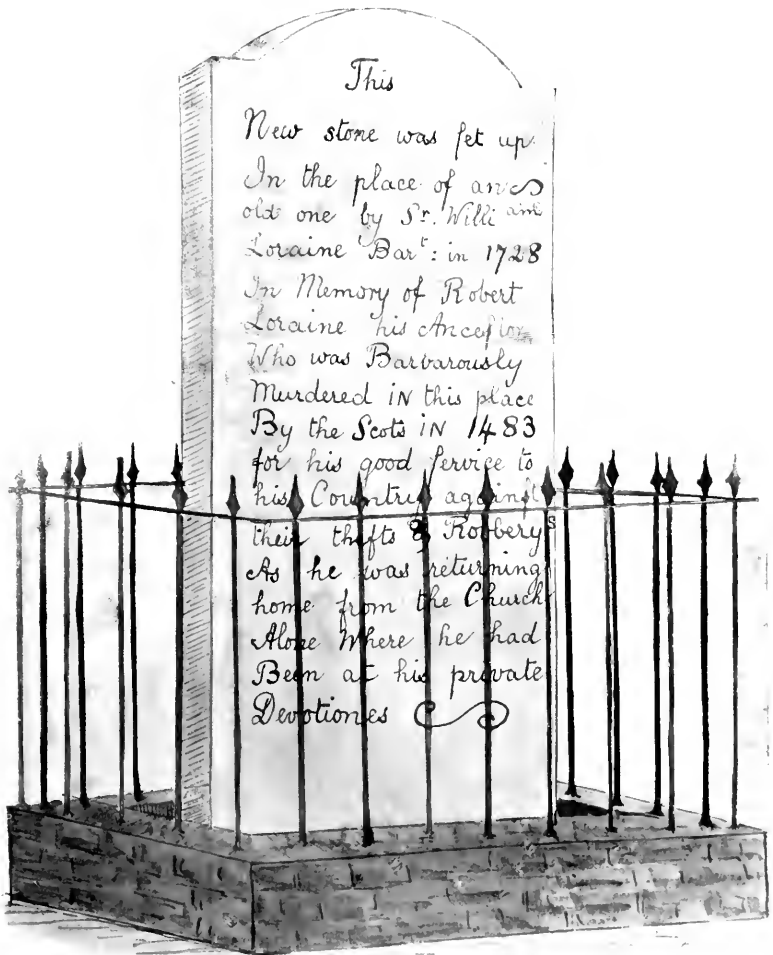 This
New stone was ſet up
In the place of an
old one by Sr. William
Loraine Bart: in 1728
In Memory of Robert
Loraine his Anceſtor
Who was Barbarously
Murdered IN this place
By the Scots IN 1483
for his good ſervice to
his Countrey againſt
their thefts & Robberys
As he was returning
home from the Church
Alone Where he had
Been at his private
Devotiones